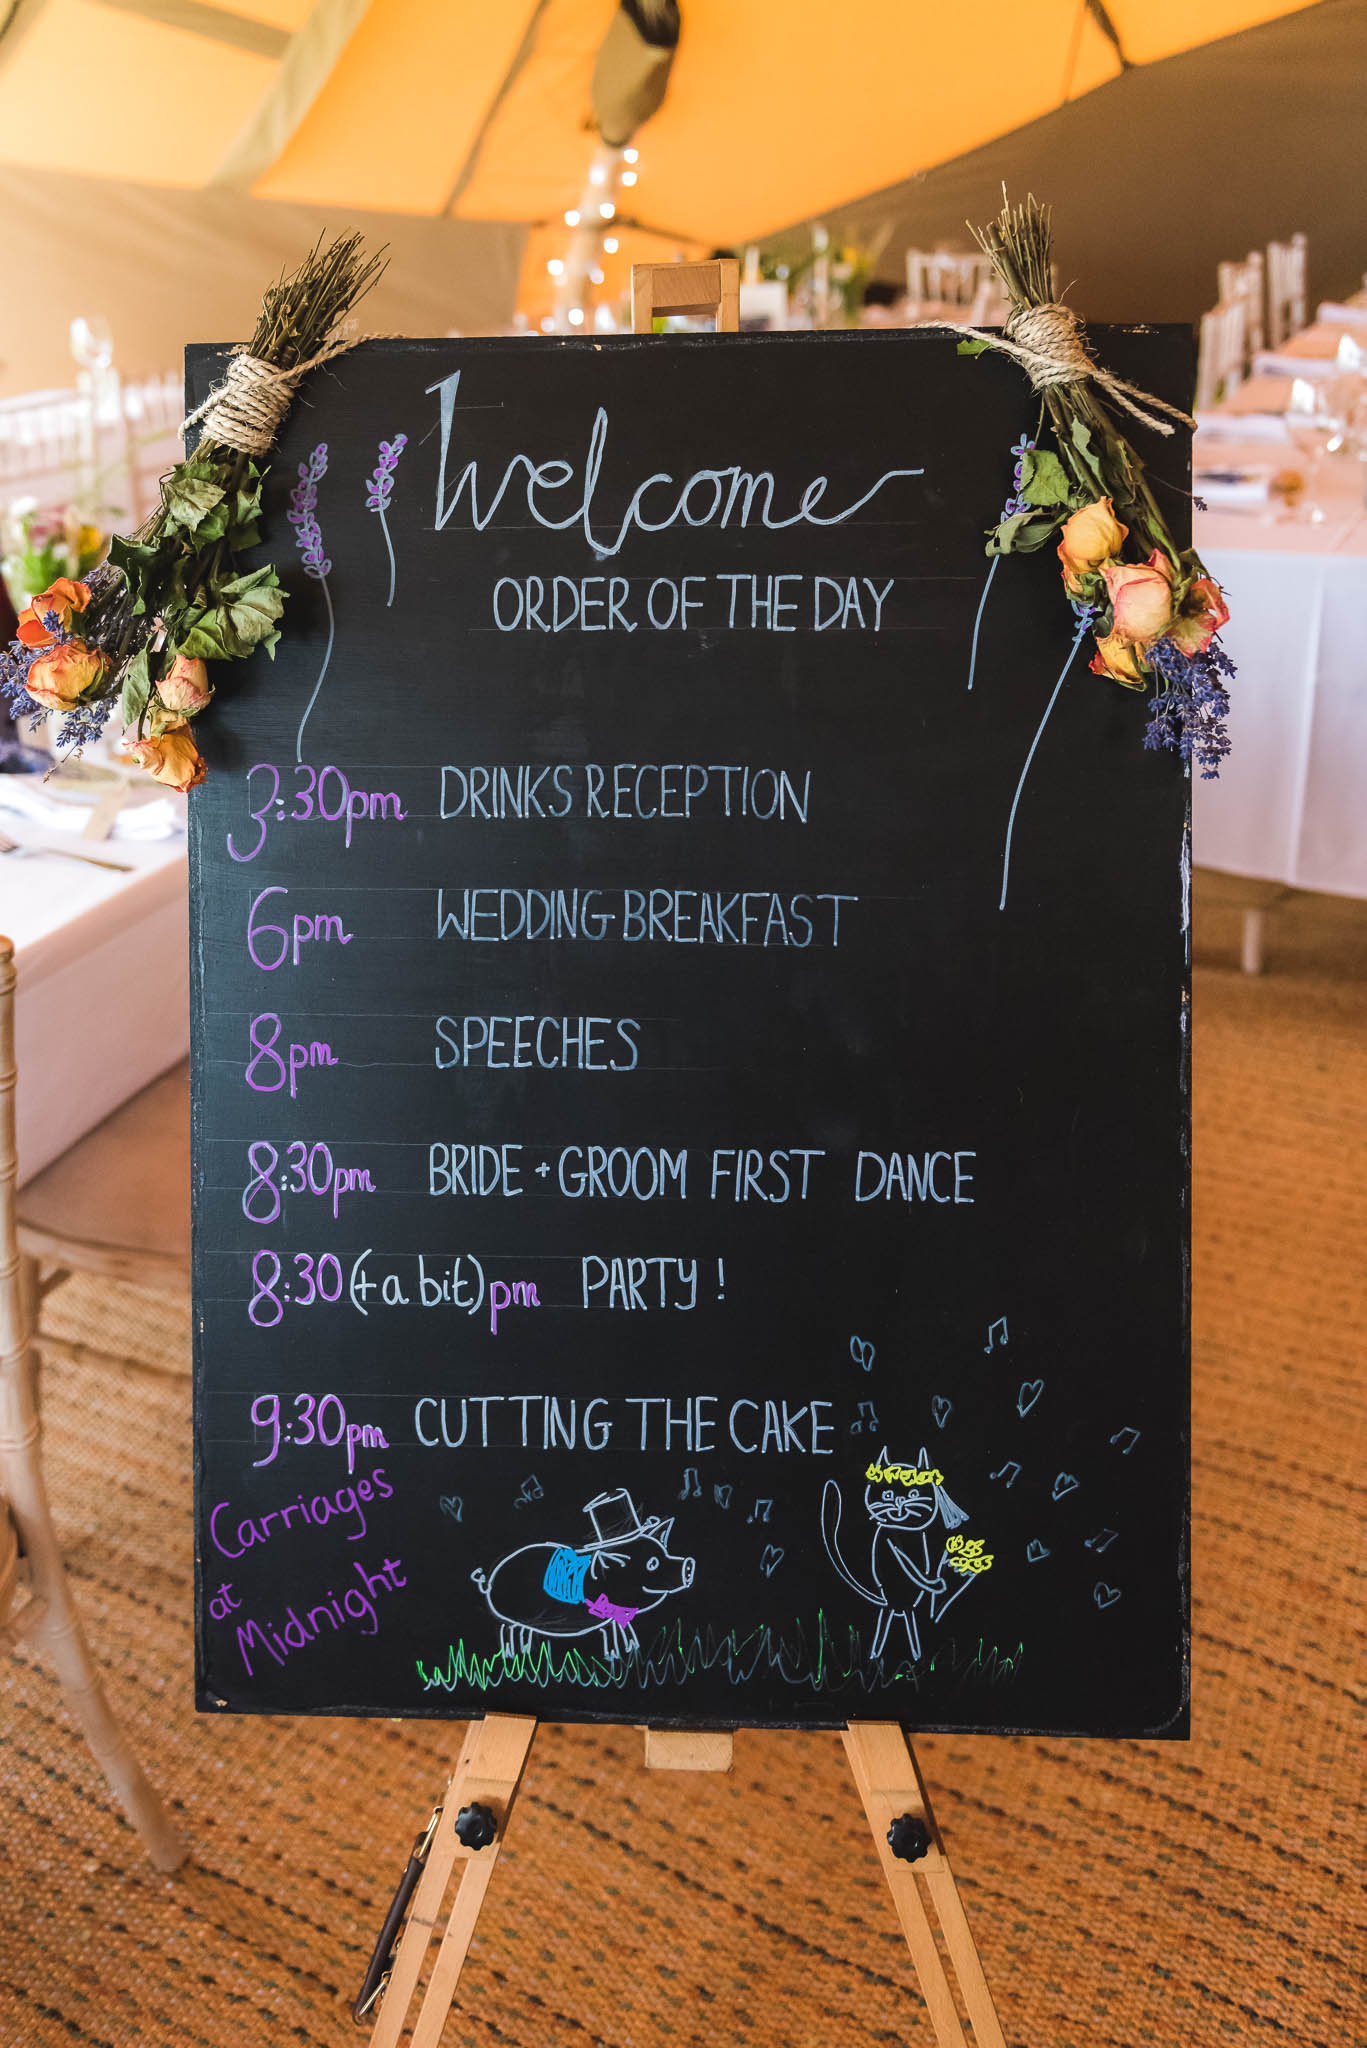 Welcome
ORDER OF THE DAY
3:30pm DRINKS RECEPTION
6pm WEDDING BREAKFAST
8pm SPEECHES
8:30pm BRIDE + GROOM FIRST DANCE
8:30(+ a bit)pm PARTY!
9:30pm CUTTING THE CAKE
Carriages
at
Midnight